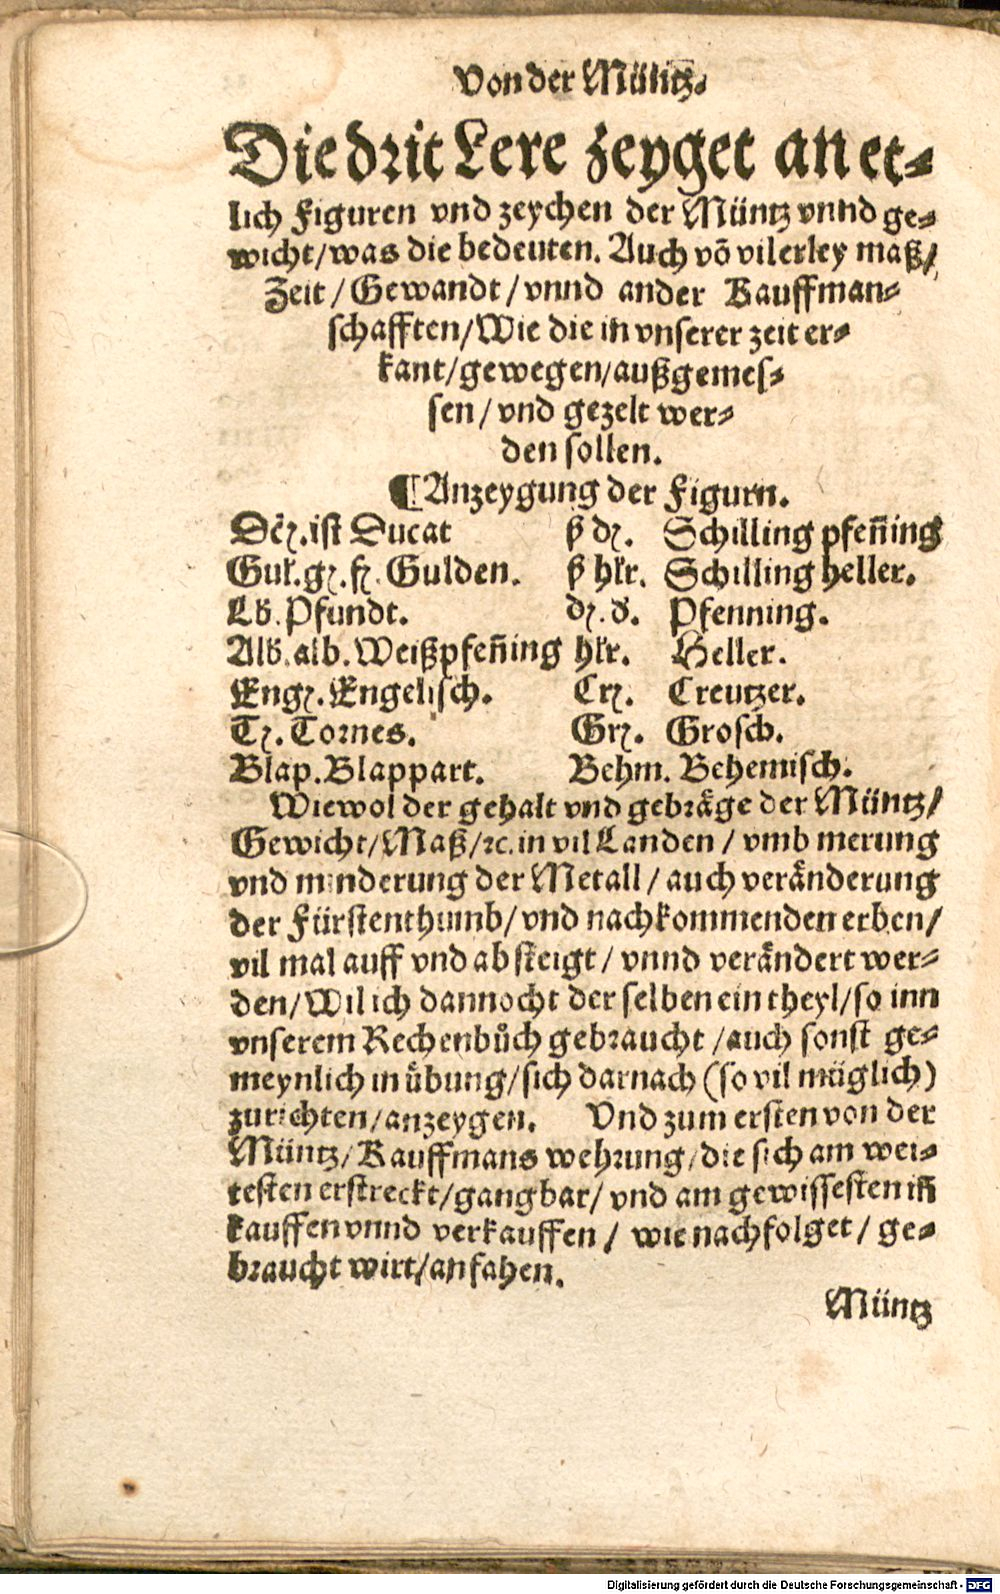 Von der Müntz.
Die drit Lere zeyget an et-
lich Figuren vnd zeychen der Müntz vnnd ge-
wicht/was die bedeuten. Auch võ vilerley maß/
Zeit/Gewandt/vnnd ander Kauffman-
schafften/Wie die in vnserer zeit er-
kant/gewegen/außgemes-
sen/vnd gezelt wer-
den sollen.
¶Anzeygung der Figurn.
Dčꝛ.ist Ducat ß dꝛ. Schilling pfeñing
Gul.gꝛ.fꝛ. Gulden. ß hlr. Schilling heller.
Lb. Pfundt. dꝛ.ꝺ. Pfenning.
Alb.alb. Weißpfeñing hlr. Heller.
Engꝛ. Engelisch. Crꝛ. Creutzer.
Tꝛ. Tornes. Grꝛ. Grosch.
Blap. Blappart. Behm. Behemisch.
Wiewol der gehalt vnd gebräge der Müntz/
Gewicht/Maß/ꝛc.in vil Landen/vmb merung
vnd minderung der Metall/auch veränderung
der Fürstenthumb/vnd nachkommenden erben/
vil mal auff vnd absteigt/vnnd verändert wer-
den/Wil ich dannocht der selben ein theyl/so inn
vnserem Rechenbůch gebraucht/auch sonst ge-
meynlich in übung/sich darnach (so vil müglich)
zurichten/anzeygen. Vnd zum ersten von der
Müntz/Kauffmans wehrung/die sich am wei-
testen erstreckt/gangbar/vnd am gewissesten iñ
kauffen vnnd verkauffen/wie nachfolget/ge-
braucht wirt/anfahen.
Müntz
Digitalisierung gefördert durch die Deutsche Forschungsgemeinschaft - DFG